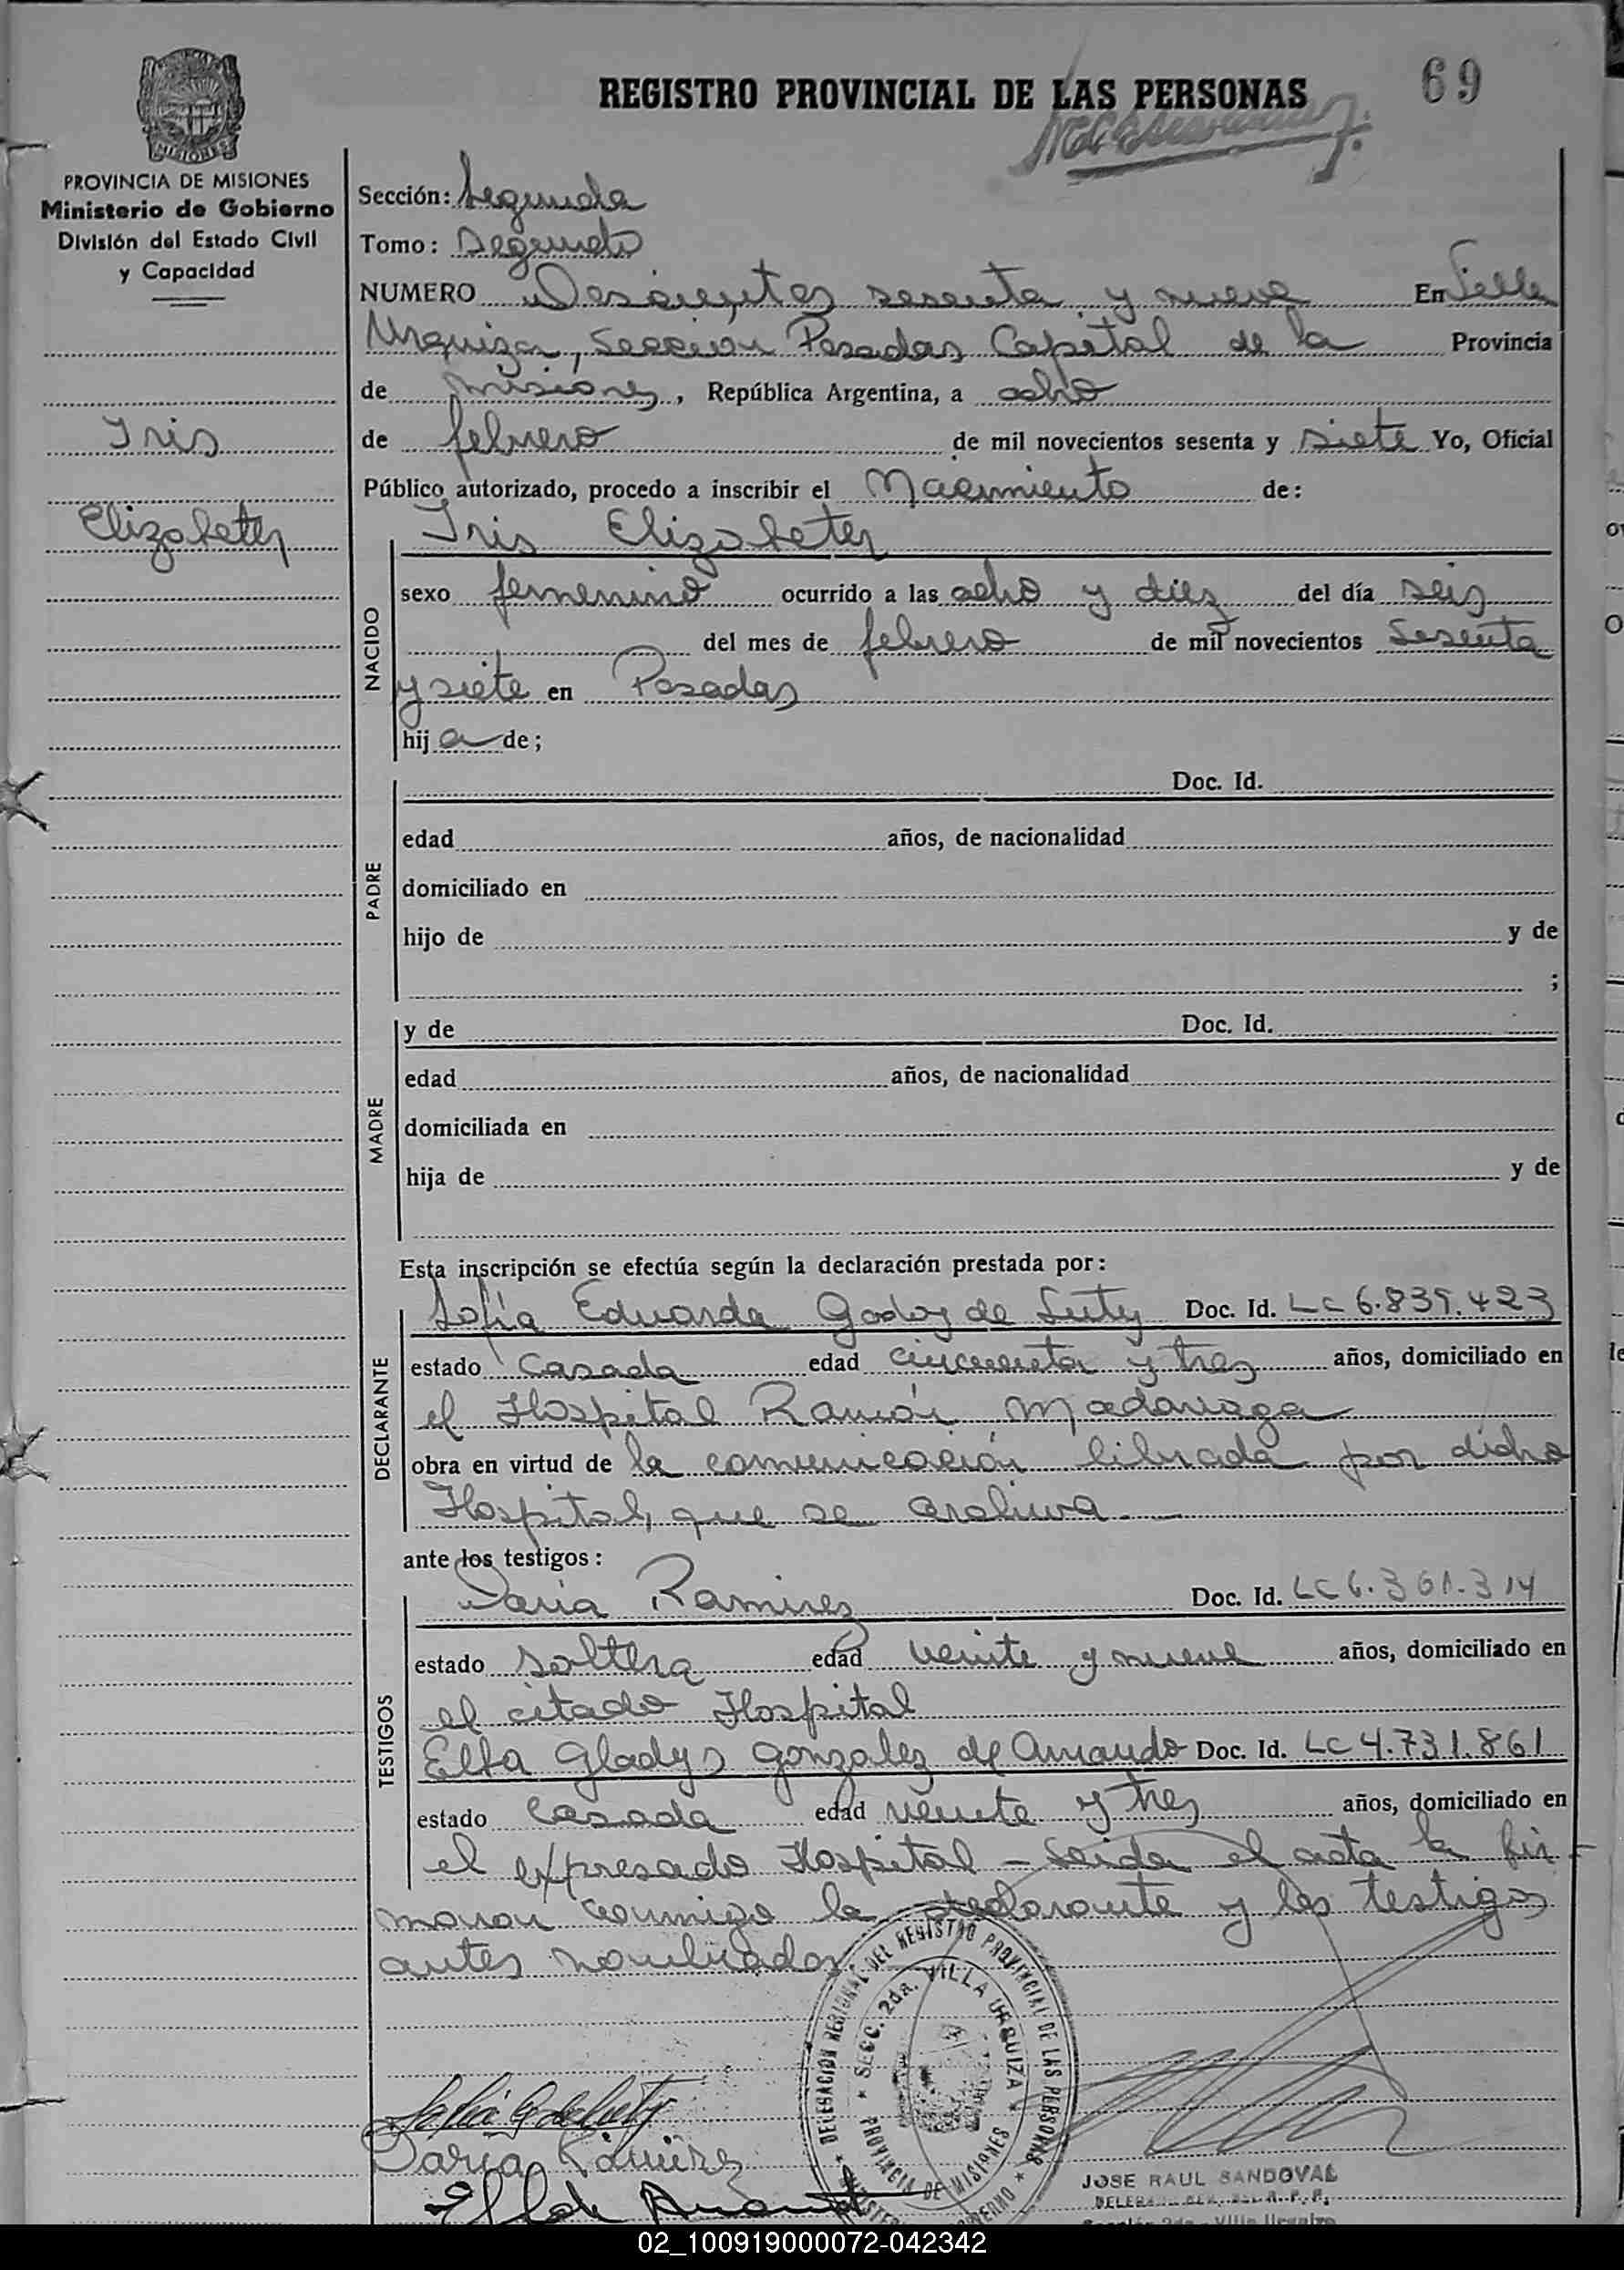 REGISTRO PROVINCIAL DE LAS PERSONAS
69
MISIONES
PROVINCIA DE MISIONES
Ministerio de Gobierno
División del Estado Civil
y Capacidad
Iris
Elizabeth
Sección: Segunda
Tomo: Segundo
NUMERO Doscientos sesenta y nueve En Villa
Urquiza, Sección Posadas Capital de la Provincia
de Misiones, República Argentina, a ocho
de febrero de mil novecientos sesenta y siete Yo, Oficial
Público autorizado, procedo a inscribir el Nacimiento de:
Iris Elizabeth
NACIDO
sexo femenino ocurrido a las ocho y diez del día seis
del mes de febrero de mil novecientos sesenta
y siete en Posadas
hija de;
PADRE
Doc. Id.
edad años, de nacionalidad
domiciliado en
hijo de y de
;
MADRE
y de Doc. Id.
edad años, de nacionalidad
domiciliada en
hija de y de
Esta inscripción se efectúa según la declaración prestada por:
DECLARANTE
Sofía Eduarda Godoy de Doc. Id. LC 6.839.423
estado Casada edad cincuenta y tres años, domiciliado en
el Hospital Ramón Madariaga
obra en virtud de la comunicación librada por dicho
Hospital, que se archiva.—
ante los testigos:
TESTIGOS
Daria Ramirez Doc. Id. LC 6.361.314
estado soltera edad veinte y nueve años, domiciliado en
el citado Hospital
Elfa Gladys Gonzalez de Amando Doc. Id. LC 4.731.861
estado Casada edad veinte y tres años, domiciliado en
el expresado Hospital – Leida el acta la fir-
maron conmigo la declarante y los testigos
antes nombrados
DELEGACION REGIONAL DEL REGISTRO PROVINCIAL DE LAS PERSONAS
SECC. 2da. VILLA URQUIZA
PROVINCIA DE MISIONES
Daria Ramirez
JOSE RAUL SANDOVAL
02_100919000072-042342